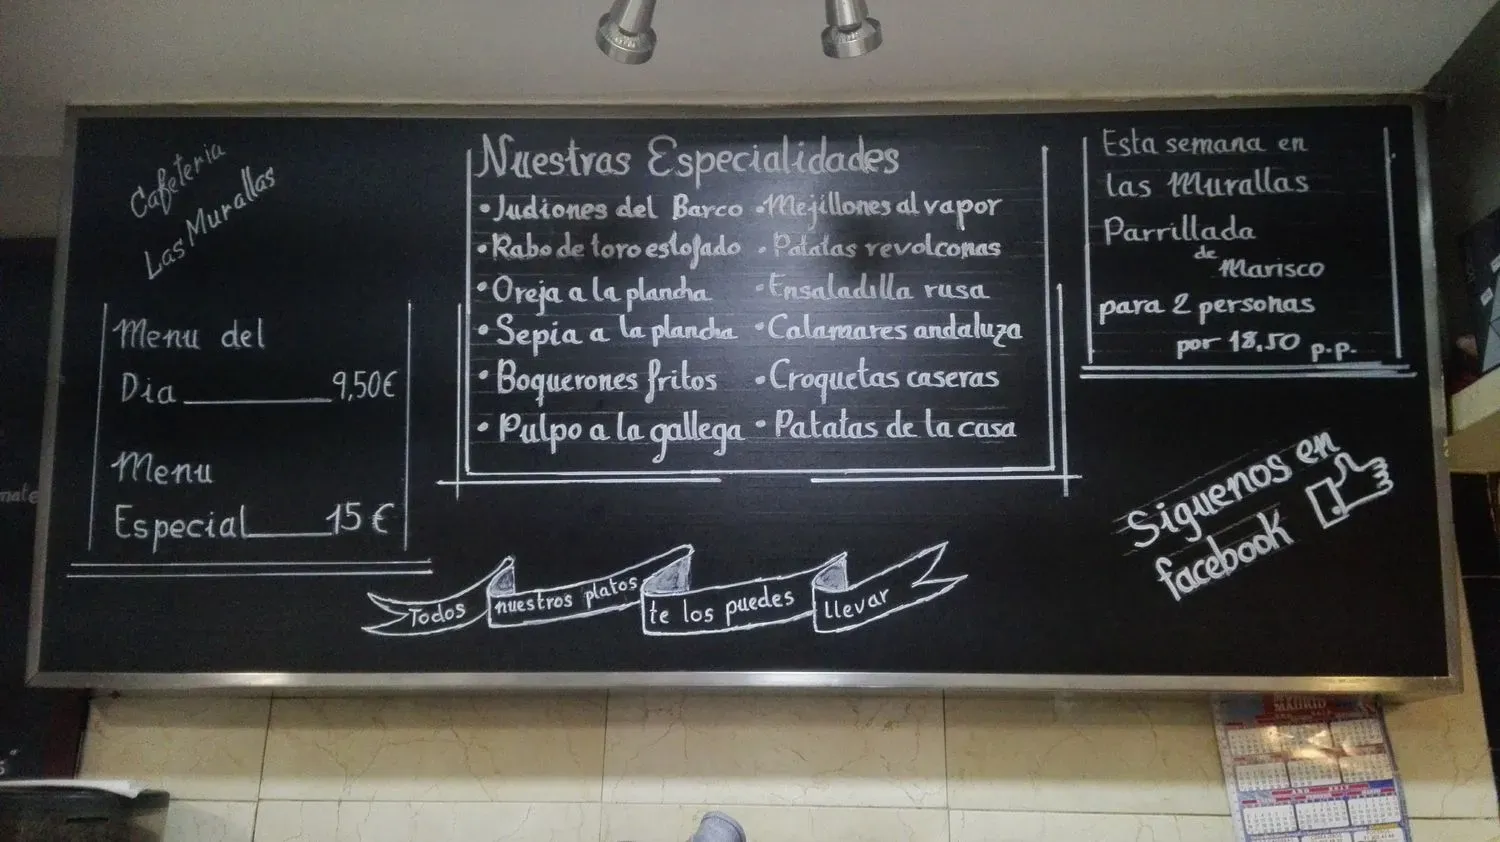 Cafeteria
Las Murallas
Menu del
Dia 9,50€
Menu
Especial 15€
Nuestras Especialidades
• Judiones del Barco
• Rabo de toro estofado
• Oreja a la plancha
• Sepia a la plancha
• Boquerones fritos
• Pulpo a la gallega
• Mejillones al vapor
• Patatas revolconas
• Ensaladilla rusa
• Calamares andaluza
• Croquetas caseras
• Patatas de la casa
Esta semana en
las Murallas
Parrillada
de
Marisco
para 2 personas
por 18,50 p.p.
Siguenos en
facebook
Todos nuestros platos te los puedes llevar
MADRID